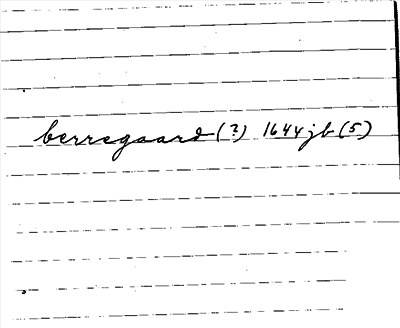 berregaard (?) 1644 jb (5)